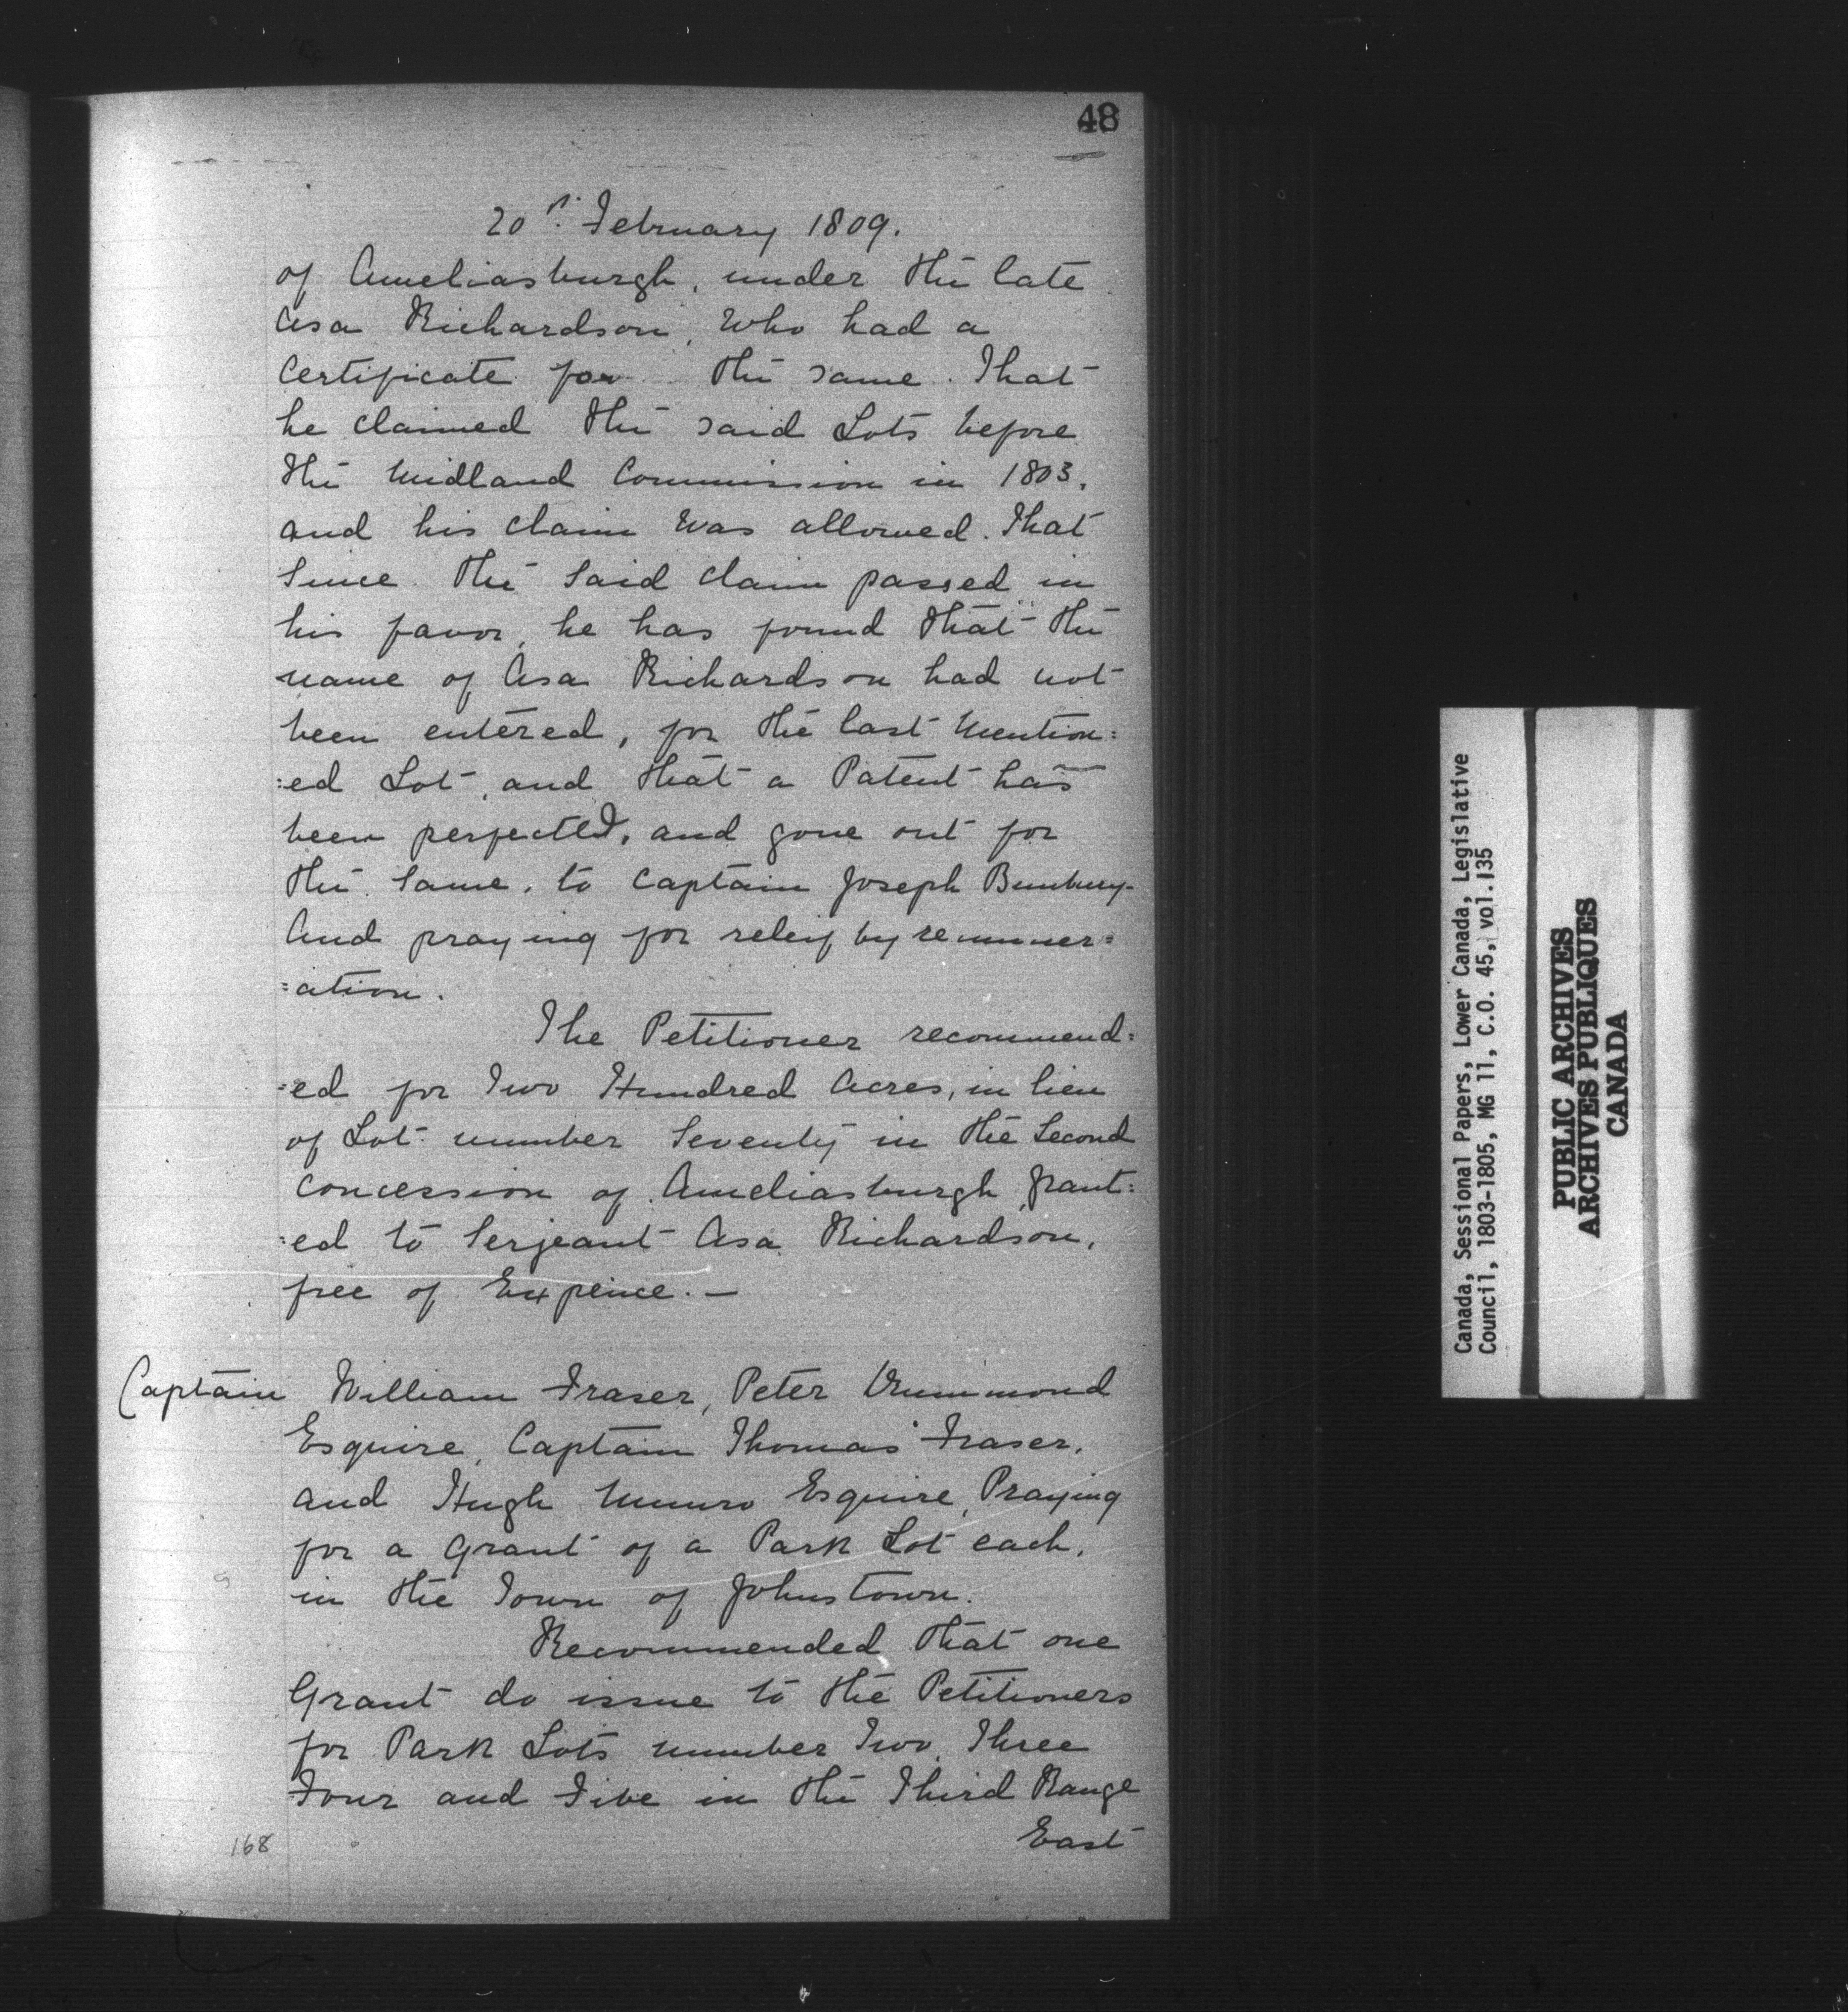 48
20th. February 1809.
of Ameliasburgh, under the late
Asa Richardson, who had a
Certificate for the same. That
he claimed the said Lots before
the Midland Commission in 1803,
and his claim was allowed. That
since the said claim passed in
his favor, he has found that the
name of Asa Richardson had not
been entered, for the last mention:
:ed Lot, and that a Patent has
been perfected, and gone out for
the same, to Captain Joseph Bunbury-
And praying for releif by remuner=
=ation.
The Petitioner recommend:
=ed for Two Hundred Acres, in lieu
of Lot number Seventy in the Second
Concession of Ameliasburgh, grant:
:ed to Serjeant Asa Richardson,
free of Expence.—
Captain William Fraser, Peter Drummond
Esquire, Captain Thomas Fraser,
and Hugh Munro Esquire, Praying
for a Grant of a Park Lot each,
in the Town of Johnstown.
Recommended that one
Grant do issue to the Petitioners
for Park Lots number Two, Three
Four and Five in the Third Range
East
168
Canada, Sessional Papers, Lower Canada, Legislative
Council, 1803-1805, MG 11, C.O. 45, vol.135
PUBLIC ARCHIVES
ARCHIVES PUBLIQUES
CANADA